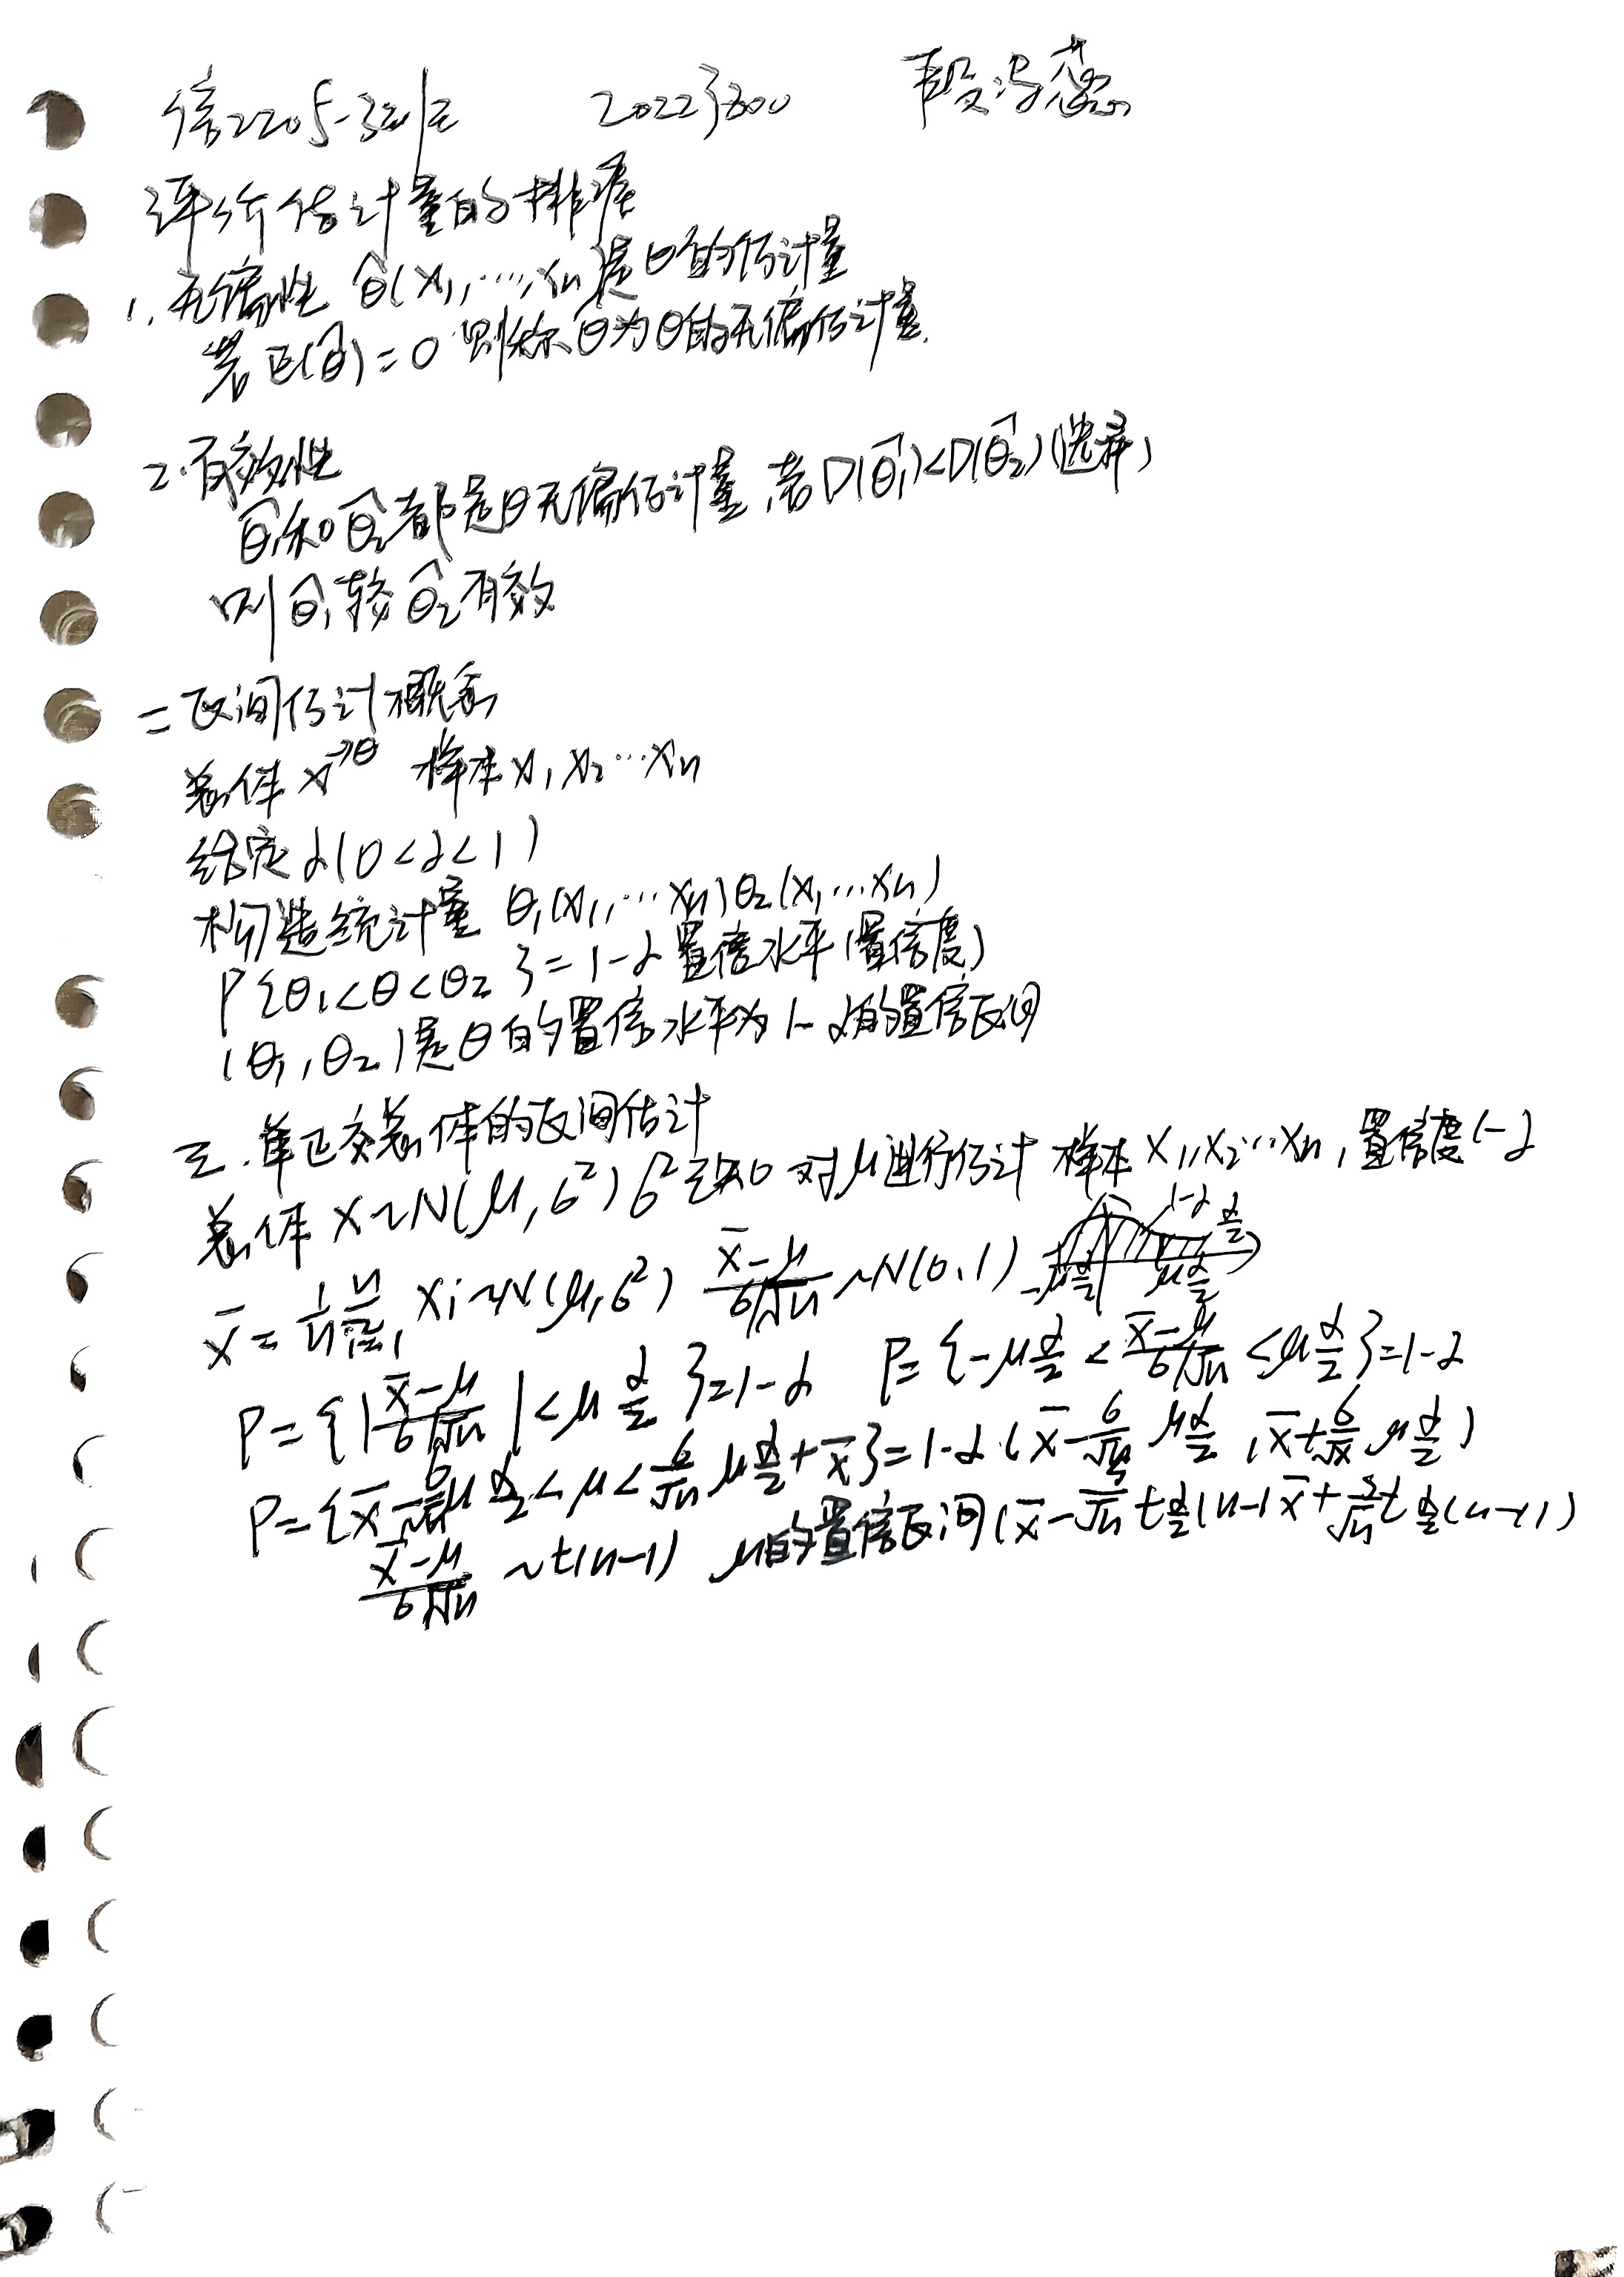 信2205-3班 20223300
评价估计量的推准
1.无偏性 θ̂(x₁,…,xₙ)是θ的估计量
若E(θ̂)=0 则称θ̂为θ的无偏估计量.
2.有效性
θ̂₁和θ̂₂都是θ无偏估计量,若D(θ̂₁)<D(θ̂₂)(选择)
则θ̂₁较θ̂₂有效
二区间估计概念
总体x→θ 样本x₁x₂…xₙ
给定α(0<α<1)
构造统计量 θ₁(x₁,…xₙ)θ₂(x₁…xₙ)
P{θ₁<θ<θ₂}=1-α置信水平(置信度)
(θ₁,θ₂)是θ的置信水平为1-α的置信区间
三.单正态总体的区间估计
总体X~N(μ,σ²)σ²已知 对μ进行估计 样本x₁,x₂…xₙ,置信度1-α
x̄=1/n Σⁿᵢ₌₁ xᵢ~N(μ,σ²) (x̄-μ)/(σ/√n)~N(0,1) -μα/2 μα/2 1-α α/2
P={|(x̄-μ)/(σ/√n)|<μα/2}=1-α P={-μα/2<(x̄-μ)/(σ/√n)≤μα/2}=1-α
P={x̄-σ/√n μα/2<μ<σ/√n μα/2+x̄}=1-α(x̄-σ/√n μα/2,x̄+σ/√n μα/2)
(x̄-μ)/(σ/√n)~t(n-1) μ的置信区间(x̄- /√n tα/2(n-1 x̄+ /√n tα/2(n-1)